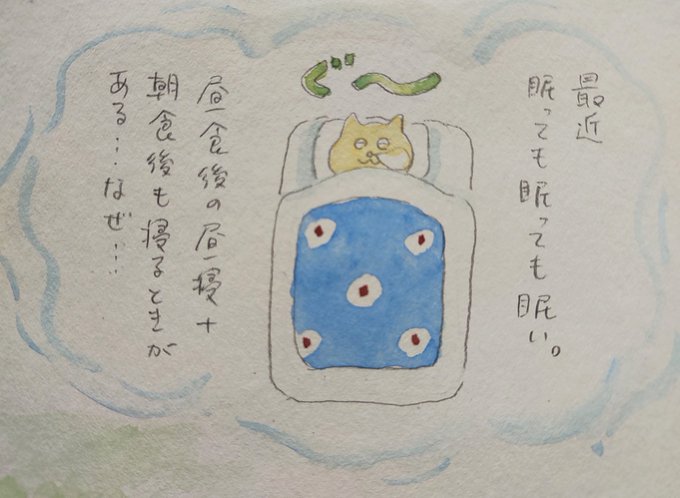 最近
眠っても眠っても眠い。
ぐ〜
昼食後の昼寝+
朝食後も寝るときが
ある…なぜ…